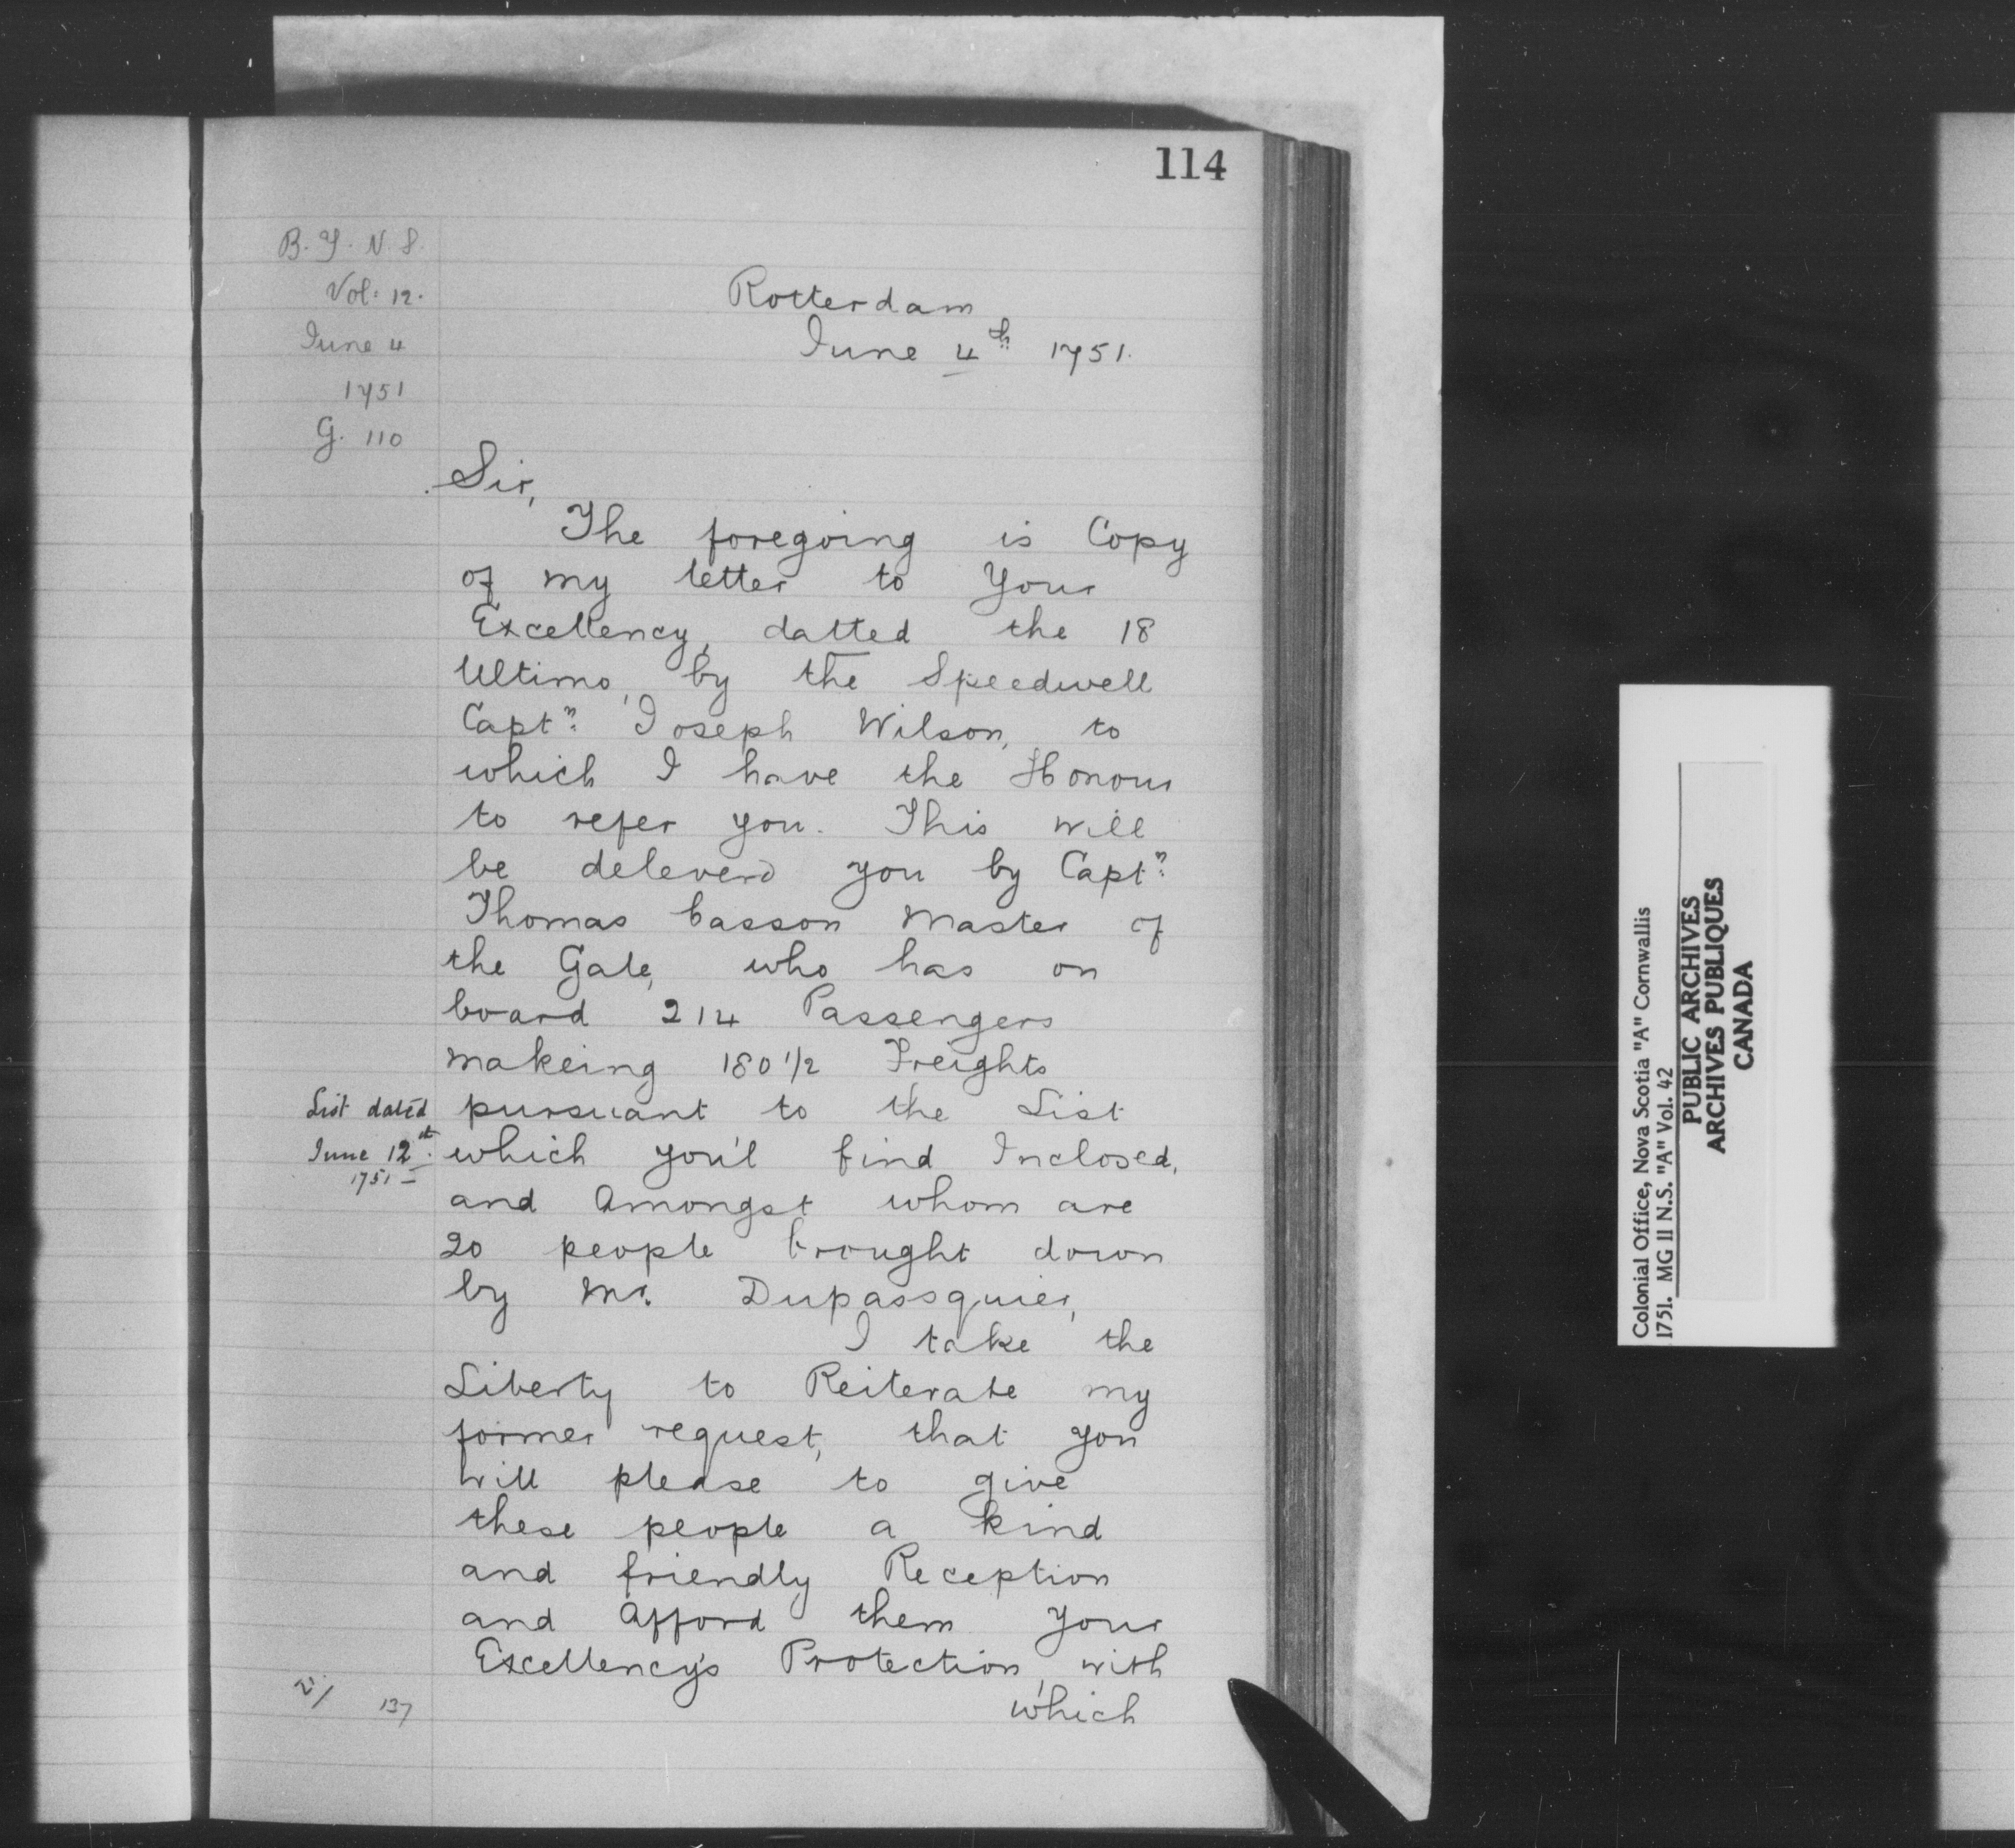 114
B. T. N. S.
Vol: 12.
June 4
1751
G. 110
Rotterdam
June 4th 1751.
Sir,
The foregoing is Copy
of my letter to Your
Excellency, datted the 18
Ultimo, by the Speedwell
Captn: Joseph Wilson, to
which I have the Honour
to refer you. This will
be deleverd you by Captn:
Thomas Casson Master of
the Gale, who has on
board 214 Passengers
makeing 180 1/2 Freights
List dated
June 12th.
1751
pursuant to the List
which you'l find Inclosed,
and Amongst whom are
20 people brought down
by Mr. Dupassquier,
I take the
Liberty to Reiterate my
former request, that you
will please to give
these people a kind
and friendly Reception
and Afford them Your
Excellency's Protection, with
which
137
Colonial Office, Nova Scotia "A" Cornwallis
1751. MG II N.S. "A" Vol. 42
PUBLIC ARCHIVES
ARCHIVES PUBLIQUES
CANADA